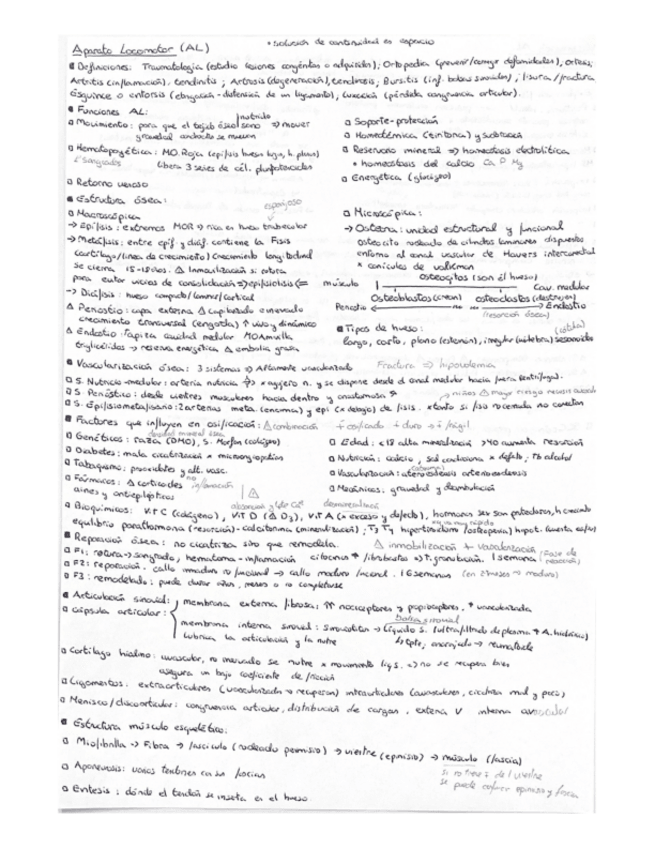 Aparato Locomotor (AL)
* solución de continuidad es espacio
Definiciones: Traumatología (estudio lesiones congénitas o adquiridas); Ortopedia (prevenir/corregir deformidades), ortesis;
Artritis (inflamación), tendinitis; Artrosis (degeneración), tendinosis; Bursitis (inf. bolsas sinoviales), fisura/fractura
Esguince o entorsis (elongación-distensión de un ligamento), luxación (pérdida congruencia articular).
Funciones AL:
nutrido
Movimiento: para que el tejido óseo sano → mover
gravedad
Hematopoyética: MO. Roja (epífisis huesos largos, h. planos)
libera 3 series de cél. pluripotenciales
Retorno venoso
Soporte-protección
Homeotérmica (tiritona) y sudoración
Reservorio mineral ⇒ homeostasis electrolítica
* homeostasis del calcio Ca P Mg
Energética (glucógeno)
Estructura ósea:
esponjoso
Macroscópica
→ Epífisis: extremos MOR → rica en hueso trabecular
→ Metáfisis: entre epíf. y diáf. contiene la Fisis
(cartílago/línea de crecimiento) crecimiento longitudinal
se cierra 15-18 años. Δ Inmovilización si rotura
para evitar vicios de consolidación → epifisiolisis
→ Diáfisis: hueso compacto/laminar/cortical
Δ Periostio: capa externa Δ capilarizado e nervado
crecimiento transversal (engrosta) ↑ vivo y dinámico
Δ Endostio: tapiza cavidad medular MO Amarilla
triglicéridos → reserva energética Δ embolia grasa
Microscópica:
→ Osteona: unidad estructural y funcional
osteocito rodeado de cilindros laminares dispuestos
entorno al canal vascular de Havers interconectado
* canículas de volkman
músculo
Osteocitos (son el hueso)
Cav. medular
Osteoblastos (crean)
osteoclastos (destruyen)
Periostio
Endostio
(resorción ósea)
Tipos de hueso:
largo, corto, plano (esternón), irregular (vértebra) sesamoideo
(rótula)
Vascularización ósea: 3 sistemas → Altamente vascularizado
Fractura ⇒ hipovolemia
S. Nutricio-medular: arteria nutricia × agujero n. y se dispone desde el canal medular hacia fuera (centrífuga).
S. Perióstico: desde vientres musculares hacia dentro y anastomosa
niños Δ mayor riesgo necrosis avascular
S. Epifisiometafisario: 2 arterias meta. (encima) y epi (x debajo) de fisis. x tanto si fiso no cerrada no conectan
Factores que influyen en osificación: Δ combinación
+ osificado + duro → + frágil
Genéticos: raza (DMO), S. Morfan (colágeno)
Diabetes: mala cicatrización x microangiopatías
Tabaquismo: y alt. vasc.
Fármacos: Δ corticoides
inflamación
aines y antiepilépticos
Edad: <18 alta mineralización >40 aumenta resorción
Nutrición: calcio, x defecto; Tb alcohol
Vascularización: arteriosclerosis
Mecánicos: gravedad y deambulación
absorción y fijar Ca²⁺
desmineraliza
Bioquímicos: Vit C (colágeno), Vit D (Δ D₃), Vit A (x exceso y defecto), hormonas sex son protectoras, h crecimiento
equilibrio parathormona (resorción)-calcitonina (mineralización); T₃ T₄ hipertiroidismo (osteopenia) hipot.
Reparación ósea: no cicatriza sino que remodela.
Δ inmobilización + vascularización
F1: rotura → sangrado, hematoma - inflamación citocinas + fibroblastos ⇒ T. granulación. 1 semana
F2: reparación, callo inmaduro no funcional → callo maduro funcional. 16 semanas
(en 2 meses → maduro)
F3: remodelado; puede durar años, meses o no completarse
Articulación sinovial:
Cápsula articular:
membrana externa fibrosa: ↑↑ nociceptores → propioceptores, + vascularizada
Bolsa sinovial
membrana interna sinovial: sinoviocitos → Líquido S. (ultrafiltrado de plasma + A. hialurónico)
lubrica la articulación y la nutre
Cartílago hialino: avascular, no inervado se nutre x movimiento liq S. ⇒ no se recupera bien
asegura un bajo coeficiente de fricción
Ligamentos: extraarticulares (vascularizado → recuperan) intraarticulares (avasculares, cicatrizan mal y poco)
Menisco/discoarticular: congruencia articular, distribución de cargas, externa V interna avascular
Estructura músculo esquelético:
Miofibrilla → Fibra → fascículo (rodeado perimisio) → vientre (epimisio) → músculo (fascia)
Aponeurosis: varios tendones en su fascian
Entesis: dónde el tendón se inserta en el hueso.
si rotura del vientre
se puede coser epimisio y fascia